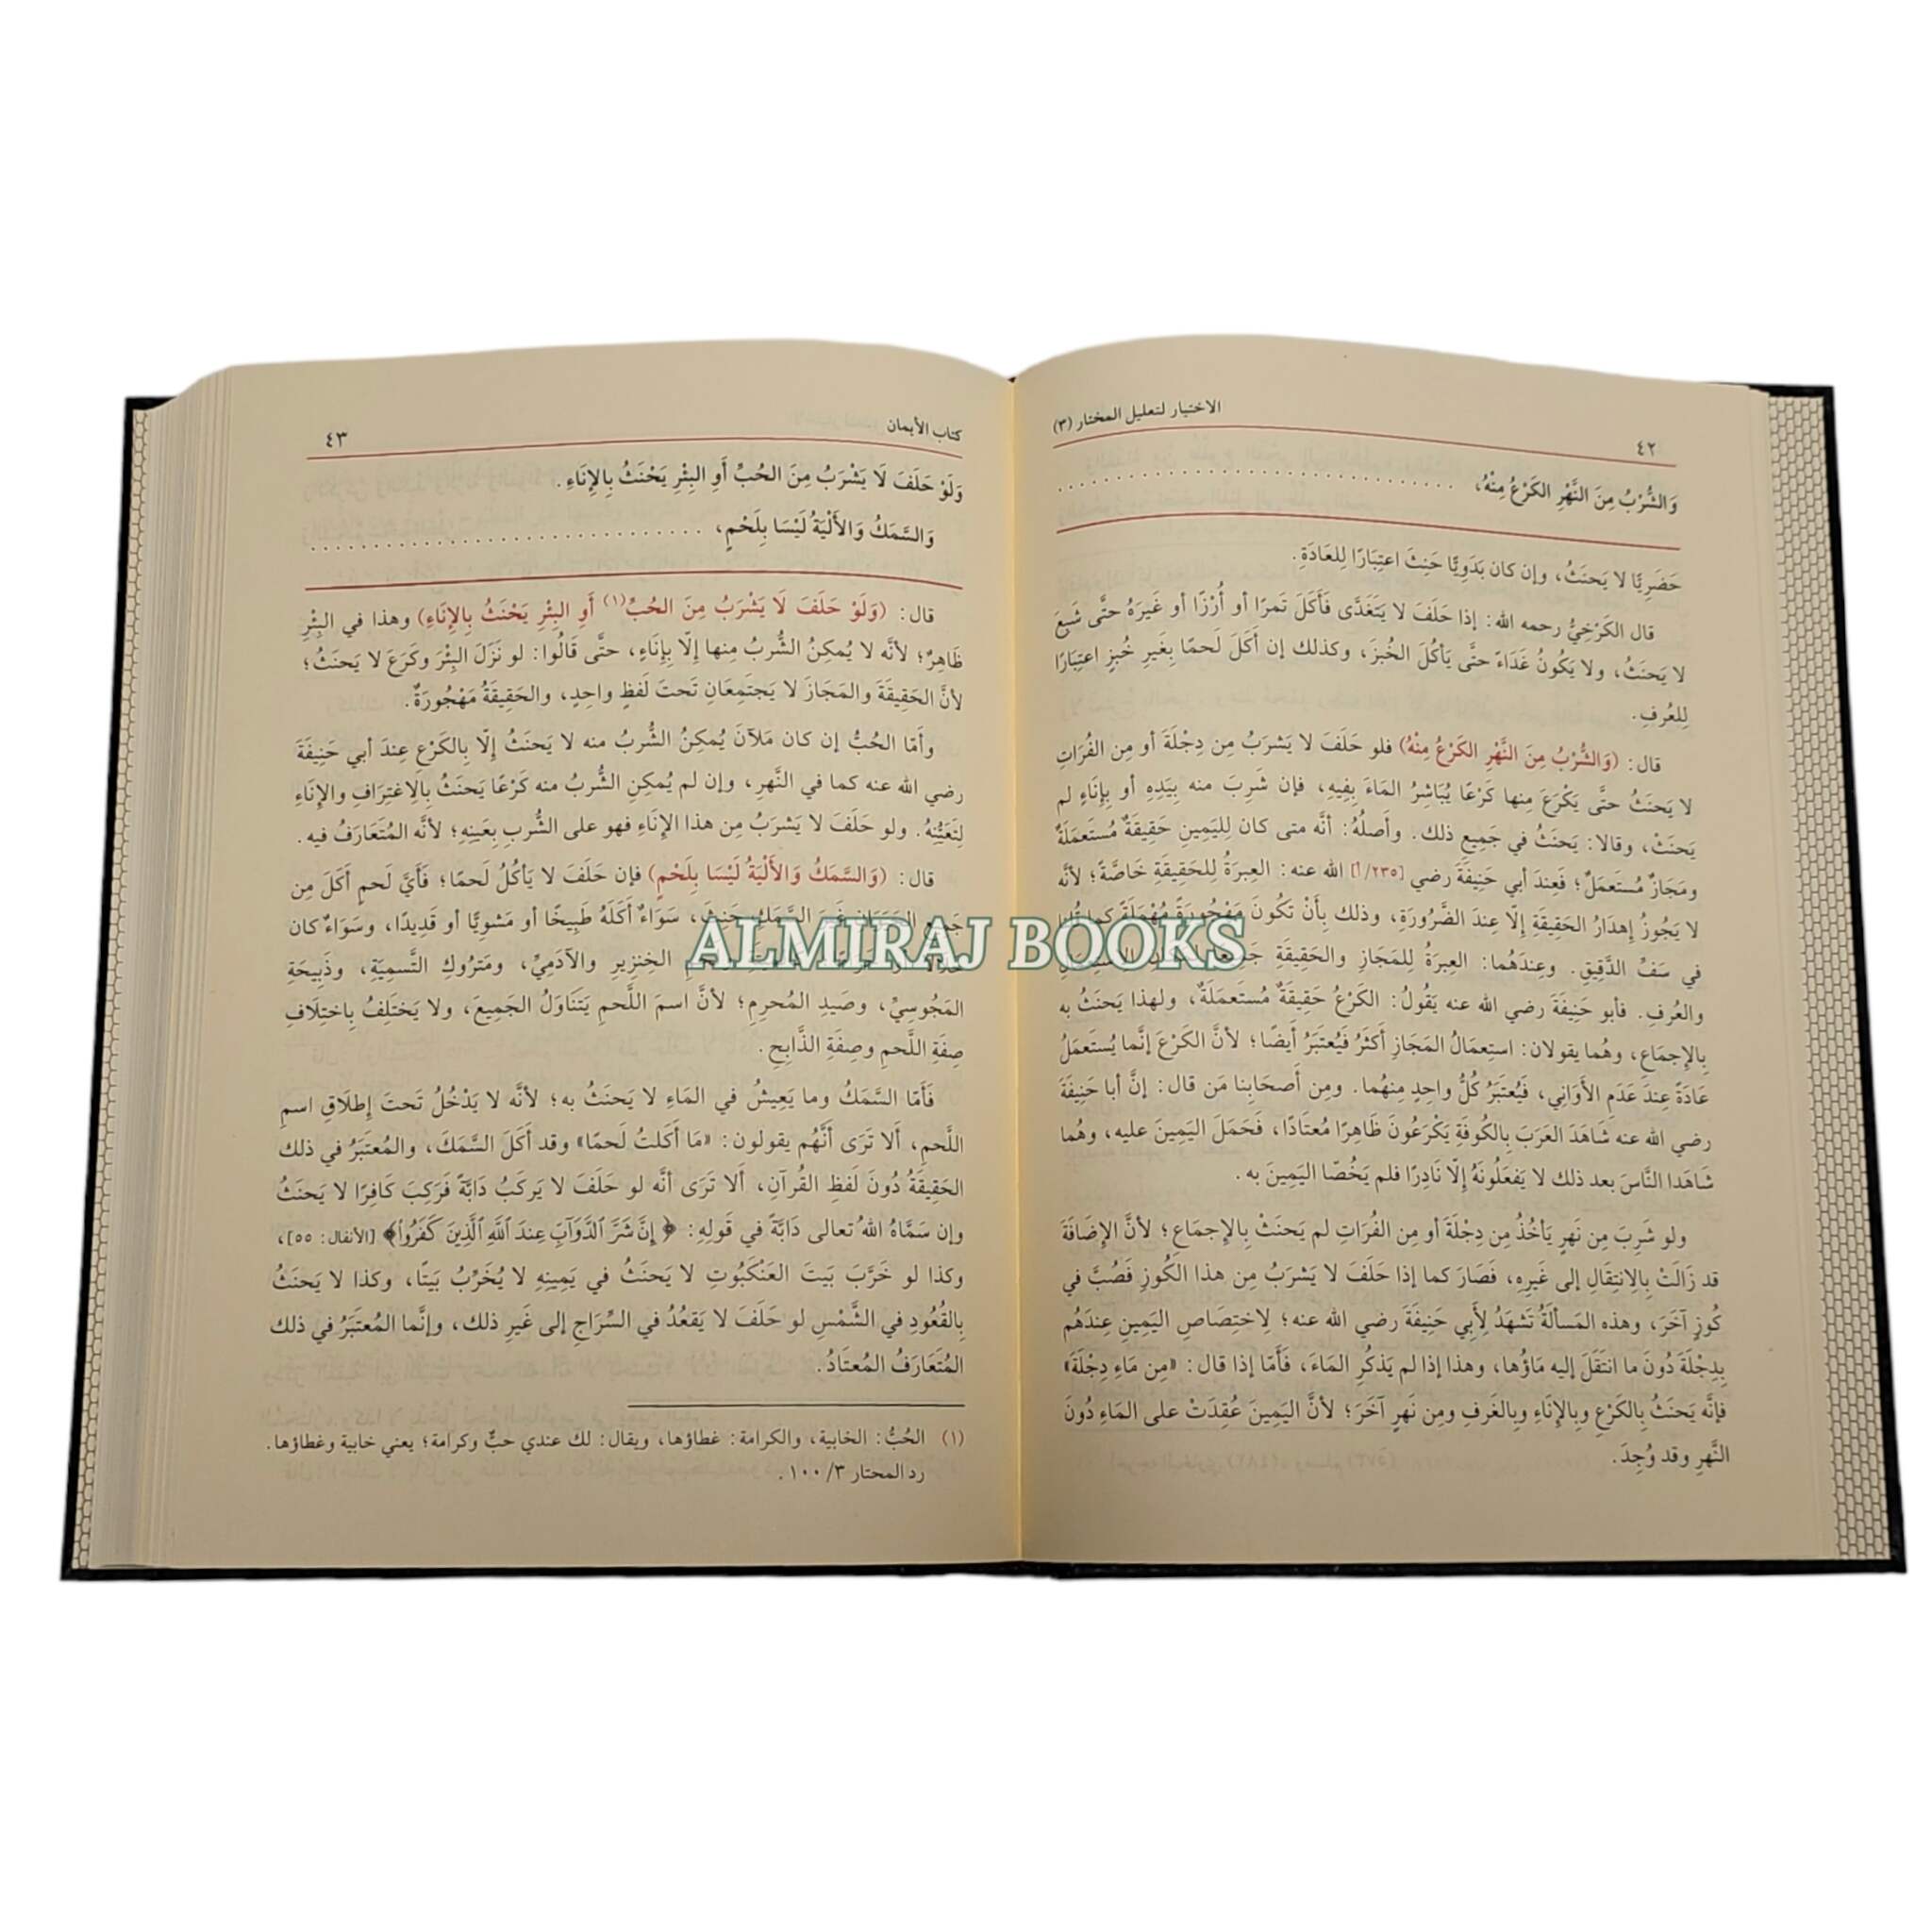 ٤٢
الاختيار لتعليل المختار (٣)
وَالشُّرْبُ مِنَ النَّهْرِ الكَرْعُ مِنْهُ، . . . . . . . . . . . . . . . . . . . . . . . . . . . . . .
حَضَرِيًّا لا يَحنَثُ، وإن كان بَدَوِيًّا حَنِثَ اعتِبَارًا لِلعَادَةِ.
قال الكَرْخِيُّ رحمه الله: إذا حَلَفَ لا يَتَغَدَّى فَأَكَلَ تَمرًا أو أُرْزًا أو غَيرَهُ حتَّى شَبِعَ
لا يَحنَثُ، ولا يَكُونُ غَدَاءً حتَّى يَأكُلَ الخُبزَ، وكذلك إن أَكَلَ لَحمًا بِغَيرِ خُبزٍ اعتِبَارًا
لِلعُرفِ.
قال: (وَالشُّرْبُ مِنَ النَّهْرِ الكَرْعُ مِنْهُ) فلو حَلَفَ لا يَشرَبُ مِن دِجْلَةَ أو مِن الفُرَاتِ
لا يَحنَثُ حتَّى يَكْرَعَ مِنها كَرْعًا يُبَاشِرُ المَاءَ بِفِيهِ، فإن شَرِبَ منه بِيَدِهِ أو بِإِنَاءٍ لم
يَحنَثْ، وقالا: يَحنَثُ في جَمِيعِ ذلك. وأَصلُهُ: أنَّه متى كان لِليَمِينِ حَقِيقَةٌ مُستَعمَلَةٌ
ومَجَازٌ مُستَعمَلٌ؛ فَعِندَ أبي حَنِيفَةَ رضي [٢٣٥/أ] الله عنه: العِبرَةُ لِلحَقِيقَةِ خَاصَّةً؛ لأنَّه
لا يَجُوزُ إِهدَارُ الحَقِيقَةِ إلّا عِندَ الضَّرُورَةِ، وذلك بِأَنْ تَكُونَ مَهْجُورَةً مُهْمَلَةً كما قُلنا
في سَفِّ الدَّقِيقِ. وعِندَهُما: العِبرَةُ لِلمَجَازِ والحَقِيقَةِ
والعُرفِ. فأبو حَنِيفَةَ رضي الله عنه يَقُولُ: الكَرْعُ حَقِيقَةٌ مُستَعمَلَةٌ، ولهذا يَحنَثُ به
بِالإِجمَاعِ، وهُما يقولان: استِعمَالُ المَجَازِ أَكثَرُ فَيُعتَبَرُ أَيضًا؛ لأنَّ الكَرْعَ إنَّما يُستَعمَلُ
عَادَةً عِندَ عَدَمِ الأَوَانِي، فَيُعتَبَرُ كُلُّ واحِدٍ مِنهُما. ومِن أَصحَابِنا مَن قال: إنَّ أبا حَنِيفَةَ
رضي الله عنه شَاهَدَ العَرَبَ بِالكُوفَةِ يَكْرَعُونَ ظَاهِرًا مُعتَادًا، فَحَمَلَ اليَمِينَ عليه، وهُما
شَاهَدَا النَّاسَ بعد ذلك لا يَفعَلُونَهُ إلّا نَادِرًا فلم يَخُصّا اليَمِينَ به.
ولو شَرِبَ مِن نَهرٍ يَأخُذُ مِن دِجْلَةَ أو مِن الفُرَاتِ لم يَحنَثْ بِالإِجمَاعِ؛ لأنَّ الإِضَافَةَ
قد زَالَتْ بِالِانتِقَالِ إلى غَيرِهِ، فَصَارَ كما إذا حَلَفَ لا يَشرَبُ مِن هذا الكُوزِ فَصُبَّ في
كُوزٍ آخَرَ، وهذه المَسأَلَةُ تَشهَدُ لِأَبِي حَنِيفَةَ رضي الله عنه؛ لِاختِصَاصِ اليَمِينِ عِندَهُم
بِدِجْلَةَ دُونَ ما انتَقَلَ إليه مَاؤُها، وهذا إذا لم يَذكُرِ المَاءَ، فَأَمّا إذا قال: «مِن مَاءِ دِجْلَةَ»
فإنَّه يَحنَثُ بِالكَرْعِ وبِالإِنَاءِ وبِالغَرفِ ومِن نَهرٍ آخَرَ؛ لأنَّ اليَمِينَ عُقِدَتْ على المَاءِ دُونَ
النَّهرِ وقد وُجِدَ.
كتاب الأيمان
٤٣
وَلَوْ حَلَفَ لَا يَشْرَبُ مِنَ الحُبِّ أَوِ البِئْرِ يَحْنَثُ بِالإِنَاءِ.
وَالسَّمَكُ وَالأَلْيَةُ لَيْسَا بِلَحْمٍ، . . . . . . . . . . . . . . . . . . . . . . . . . . . . . .
قال: (وَلَوْ حَلَفَ لَا يَشْرَبُ مِنَ الحُبِّ(١) أَوِ البِئْرِ يَحْنَثُ بِالإِنَاءِ) وهذا في البِئْرِ
ظَاهِرٌ؛ لأنَّه لا يُمكِنُ الشُّربُ مِنها إلّا بِإِنَاءٍ، حتَّى قَالُوا: لو نَزَلَ البِئْرَ وكَرَعَ لا يَحنَثُ؛
لأنَّ الحَقِيقَةَ والمَجَازَ لا يَجتَمِعَانِ تَحتَ لَفظٍ واحِدٍ، والحَقِيقَةُ مَهْجُورَةٌ.
وأَمّا الحُبُّ إن كان مَلآنَ يُمكِنُ الشُّربُ منه لا يَحنَثُ إلّا بِالكَرْعِ عِندَ أبي حَنِيفَةَ
رضي الله عنه كما في النَّهرِ، وإن لم يُمكِنِ الشُّربُ منه كَرْعًا يَحنَثُ بِالِاغتِرَافِ والإِنَاءِ
لِتَعَيُّنِهِ. ولو حَلَفَ لا يَشرَبُ مِن هذا الإِنَاءِ فهو على الشُّربِ بِعَينِهِ؛ لأنَّه المُتَعَارَفُ فيه.
قال: (وَالسَّمَكُ وَالأَلْيَةُ لَيْسَا بِلَحْمٍ) فإن حَلَفَ لا يَأكُلُ لَحمًا؛ فَأَيَّ لَحمٍ أَكَلَ مِن
جَمِيعِ الحَيَوَانِ غَيرَ السَّمَكِ حَنِثَ، سَوَاءٌ أَكَلَهُ طَبِيخًا أو مَشوِيًّا أو قَدِيدًا، وسَوَاءٌ كان
الخِنزِيرِ والآدَمِيِّ، ومَترُوكِ التَّسمِيَةِ، وذَبِيحَةِ
المَجُوسِيِّ، وصَيدِ المُحرِمِ؛ لأنَّ اسمَ اللَّحمِ يَتَنَاوَلُ الجَمِيعَ، ولا يَختَلِفُ بِاختِلَافِ
صِفَةِ اللَّحمِ وصِفَةِ الذَّابِحِ.
فَأَمّا السَّمَكُ وما يَعِيشُ في المَاءِ لا يَحنَثُ به؛ لأنَّه لا يَدْخُلُ تَحتَ إِطلَاقِ اسمِ
اللَّحمِ، أَلا تَرَى أَنَّهُم يقولون: «مَا أَكَلتُ لَحمًا» وقد أَكَلَ السَّمَكَ، والمُعتَبَرُ في ذلك
الحَقِيقَةُ دُونَ لَفظِ القُرآنِ، أَلا تَرَى أنَّه لو حَلَفَ لا يَركَبُ دَابَّةً فَرَكِبَ كَافِرًا لا يَحنَثُ
وإن سَمَّاهُ اللهُ تعالى دَابَّةً في قَولِهِ: ﴿إِنَّ شَرَّ ٱلدَّوَآبِّ عِندَ ٱللَّهِ ٱلَّذِينَ كَفَرُوا۟﴾ [الأنفال: ٥٥]،
وكذا لو خَرَّبَ بَيتَ العَنْكَبُوتِ لا يَحنَثُ في يَمِينِهِ لا يُخَرِّبُ بَيتًا، وكذا لا يَحنَثُ
بِالقُعُودِ في الشَّمْسِ لو حَلَفَ لا يَقعُدُ في السِّرَاجِ إلى غَيرِ ذلك، وإنَّما المُعتَبَرُ في ذلك
المُتَعَارَفُ المُعتَادُ.
(١) الحُبُّ: الخابية، والكرامة: غطاؤها، ويقال: لك عندي حبٌّ وكرامة؛ يعني خابية وغطاؤها.
رد المحتار ٣/ ١٠٠.
ALMIRAJ BOOKS